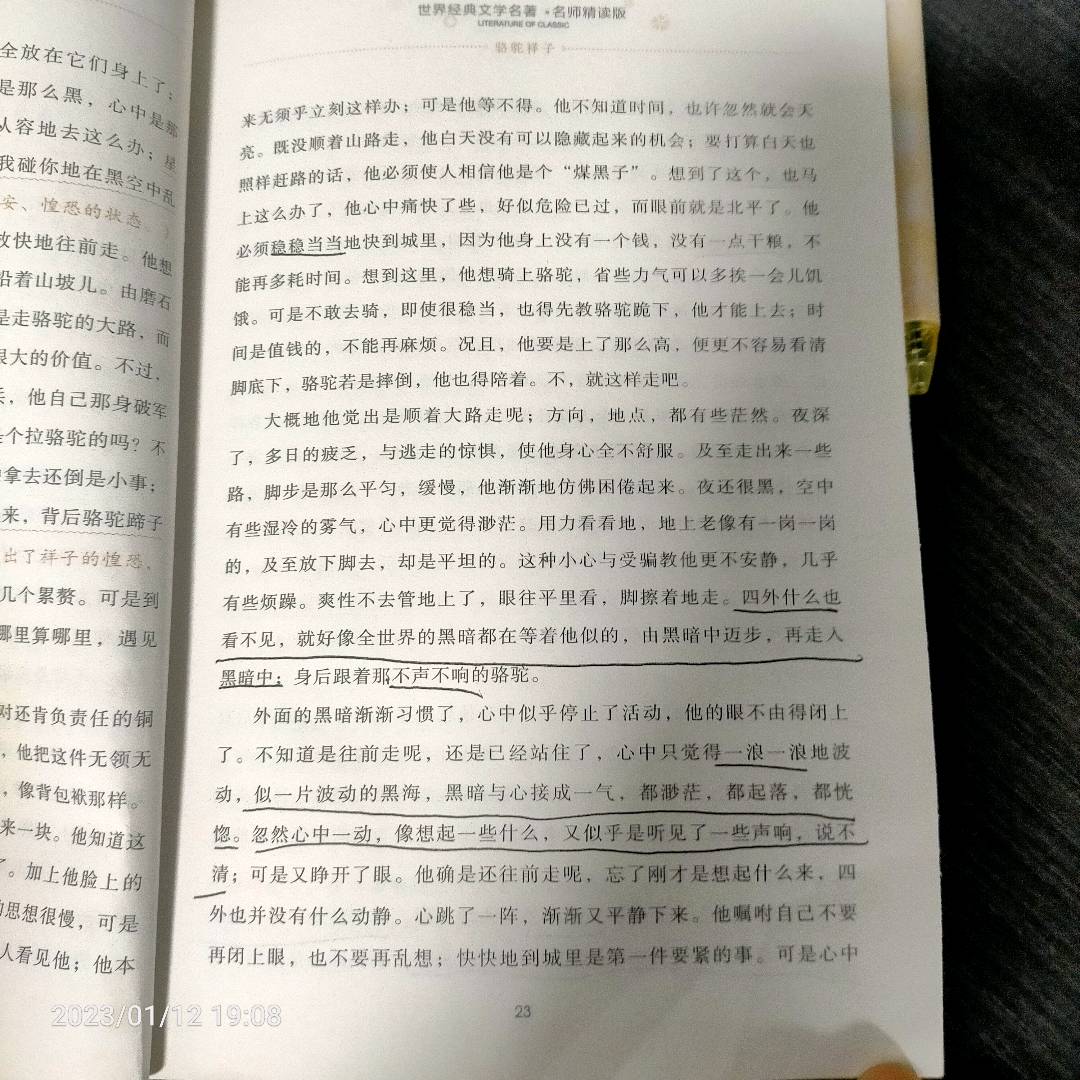 全放在它们身上了；
是那么黑，心中是那
从容地去这么办；星
我碰你地在黑空中乱
安、惶恐的状态。
放快地往前走。他想
沿着山坡儿。由磨石
是走骆驼的大路，而
很大的价值。不过，
，他自己那身破军
个拉骆驼的吗？不
拿去还倒是小事；
来，背后骆驼蹄子
出了祥子的惶恐、
几个累赘。可是到
哪里算哪里，遇见
对还肯负责任的铜
，他把这件无领无
，像背包袱那样。
来一块。他知道这
了。加上他脸上的
的思想很慢，可是
人看见他；他本
世界经典文学名著·名师精读版
LITERATURE OF CLASSIC
骆驼祥子
来无须乎立刻这样办；可是他等不得。他不知道时间，也许忽然就会天
亮。既没顺着山路走，他白天没有可以隐藏起来的机会；要打算白天也
照样赶路的话，他必须使人相信他是个“煤黑子”。想到了这个，也马
上这么办了，他心中痛快了些，好似危险已过，而眼前就是北平了。他
必须稳稳当当地快到城里，因为他身上没有一个钱，没有一点干粮，不
能再多耗时间。想到这里，他想骑上骆驼，省些力气可以多挨一会儿饥
饿。可是不敢去骑，即使很稳当，也得先教骆驼跪下，他才能上去；时
间是值钱的，不能再麻烦。况且，他要是上了那么高，便更不容易看清
脚底下，骆驼若是摔倒，他也得陪着。不，就这样走吧。
大概地他觉出是顺着大路走呢；方向，地点，都有些茫然。夜深
了，多日的疲乏，与逃走的惊惧，使他身心全不舒服。及至走出来一些
路，脚步是那么平匀，缓慢，他渐渐地仿佛困倦起来。夜还很黑，空中
有些湿冷的雾气，心中更觉得渺茫。用力看看地，地上老像有一岗一岗
的，及至放下脚去，却是平坦的。这种小心与受骗教他更不安静，几乎
有些烦躁。爽性不去管地上了，眼往平里看，脚擦着地走。四外什么也
看不见，就好像全世界的黑暗都在等着他似的，由黑暗中迈步，再走入
黑暗中；身后跟着那不声不响的骆驼。
外面的黑暗渐渐习惯了，心中似乎停止了活动，他的眼不由得闭上
了。不知道是往前走呢，还是已经站住了，心中只觉得一浪一浪地波
动，似一片波动的黑海，黑暗与心接成一气，都渺茫，都起落，都恍
惚。忽然心中一动，像想起一些什么，又似乎是听见了一些声响，说不
清；可是又睁开了眼。他确是还往前走呢，忘了刚才是想起什么来，四
外也并没有什么动静。心跳了一阵，渐渐又平静下来。他嘱咐自己不要
再闭上眼，也不要再乱想；快快地到城里是第一件要紧的事。可是心中
23
2023/01/12 19:08